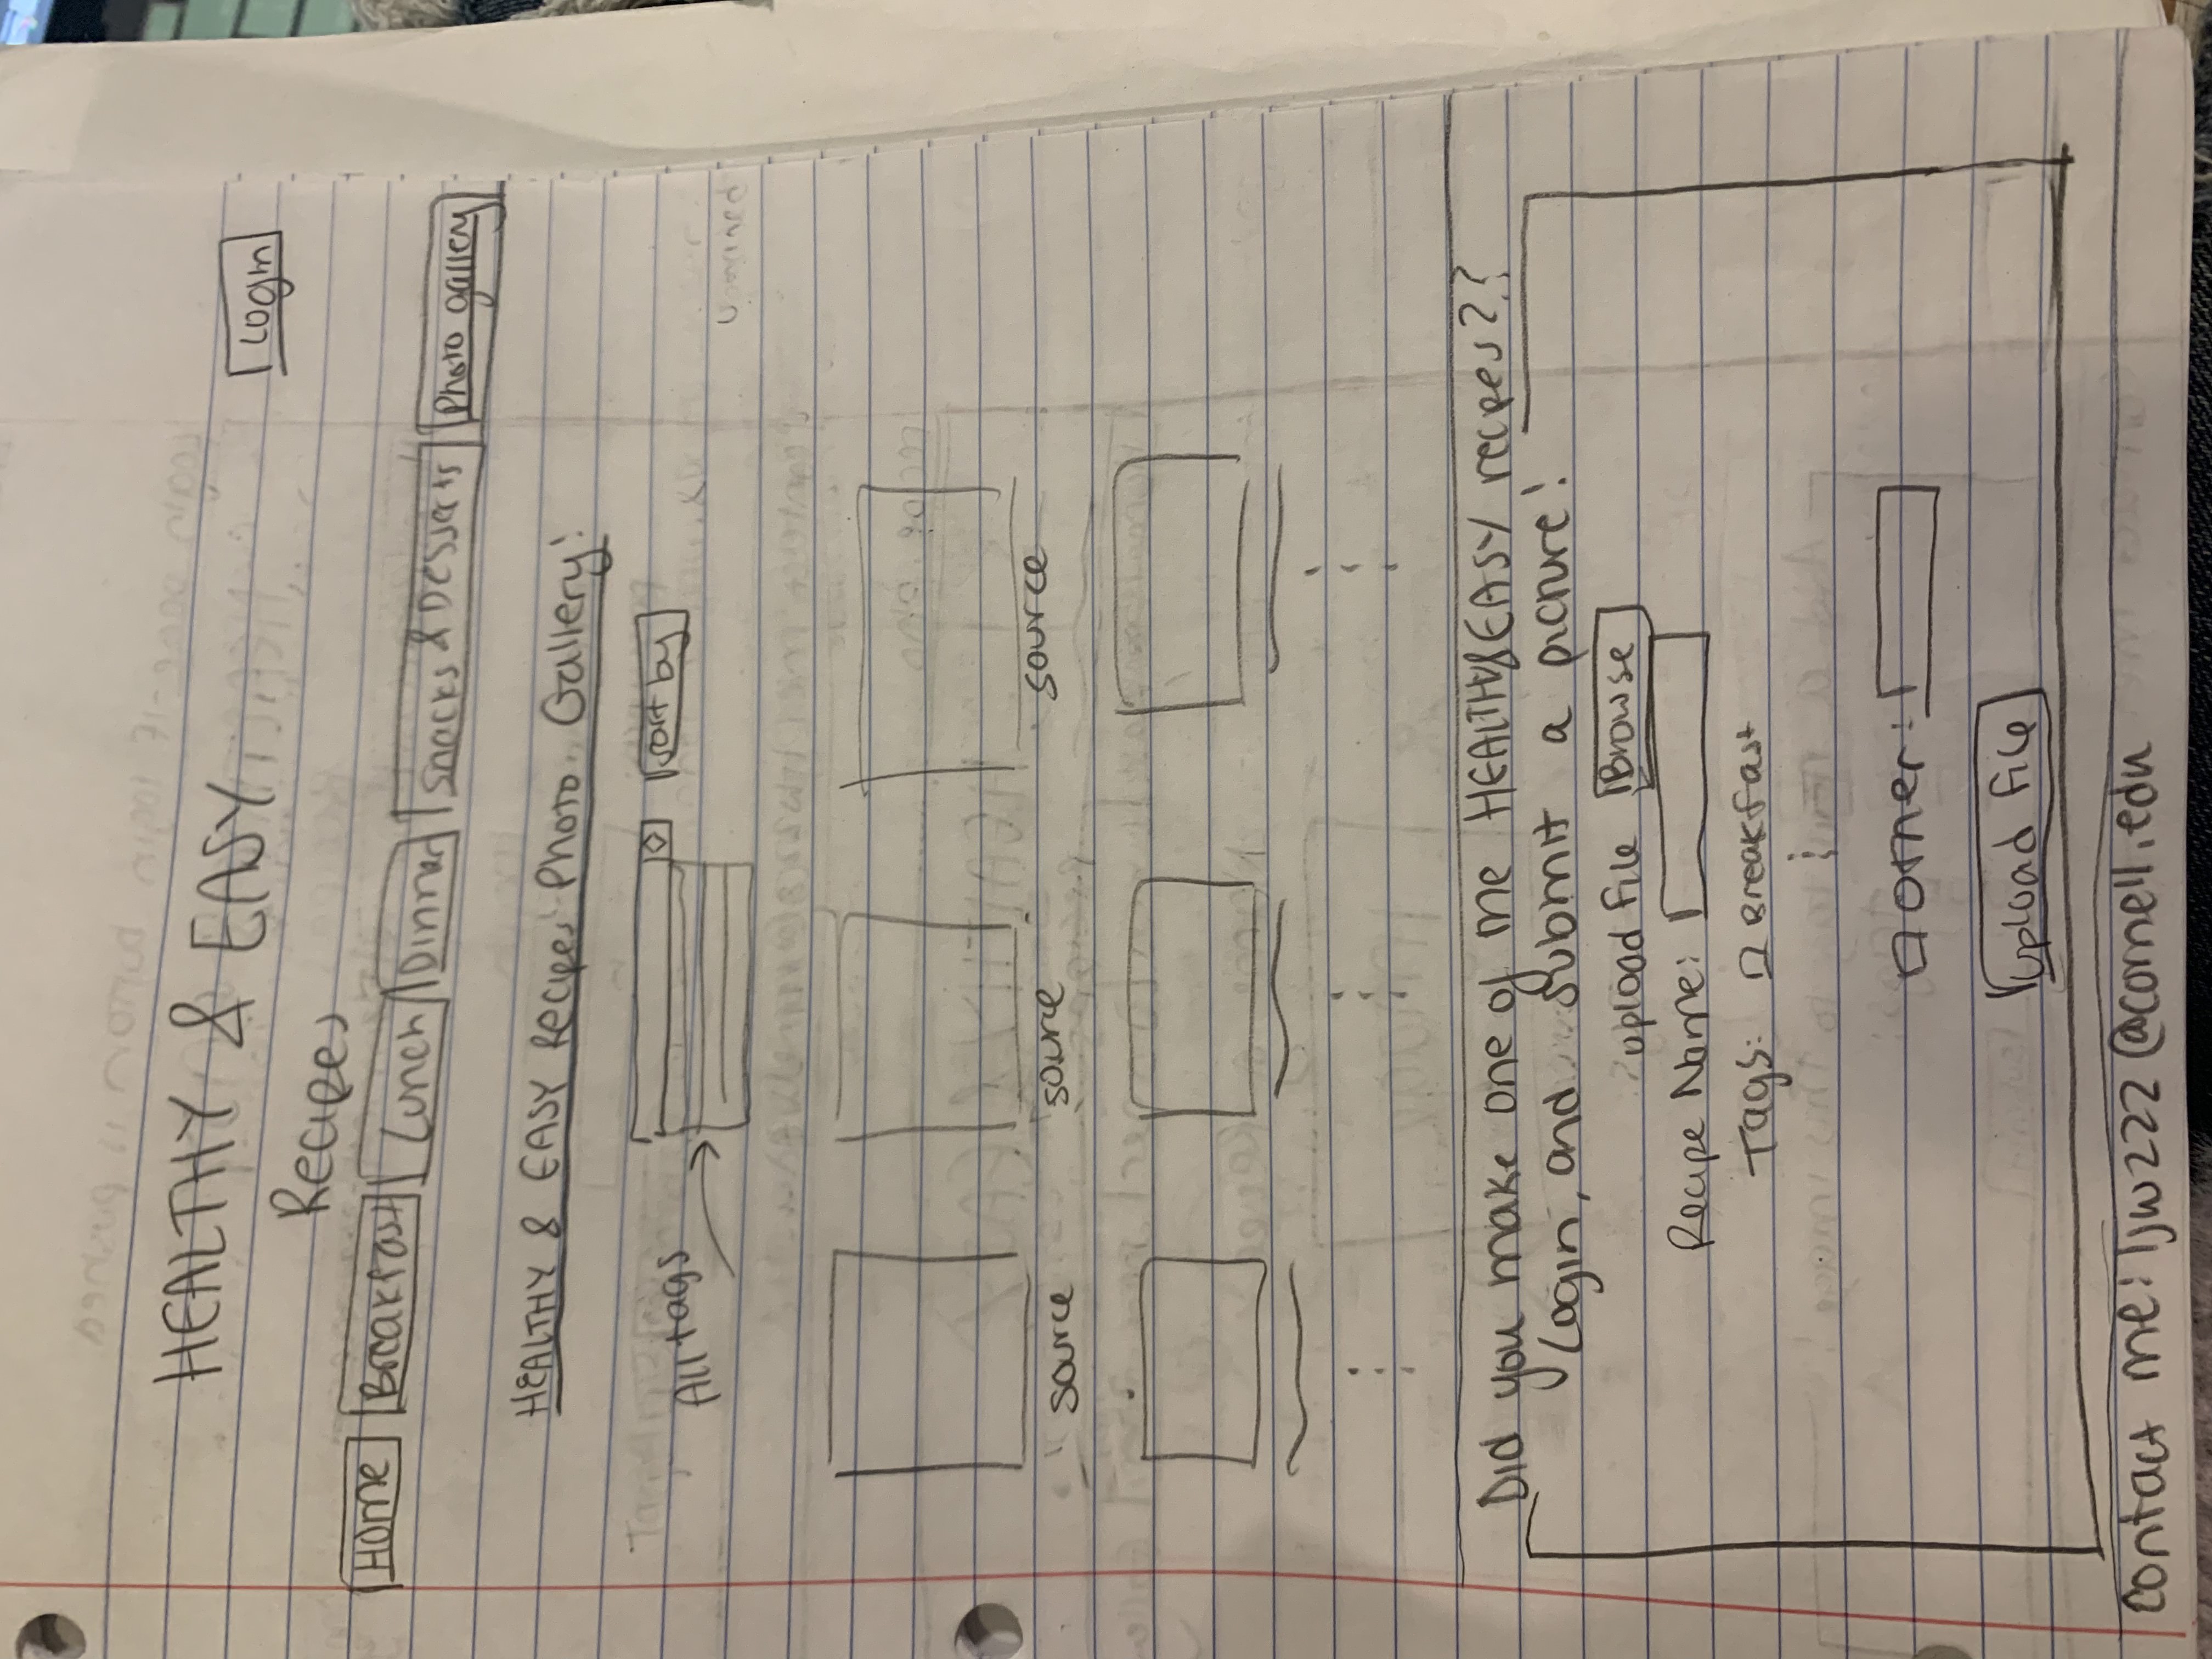 HEALTHY & EASY
Login
Recipes
Home Breakfast Lunch Dinner Snacks & Desserts Photo gallery
HEALTHY & EASY Recipes' Photo Gallery!
All tags sort by
source source source
Did you make one of me HEALTHY&EASY recipes??
Login, and submit a picture!
upload file Browse
Recipe Name:
Tags: Breakfast
other:
upload file
contact me: ljw222@cornell.edu